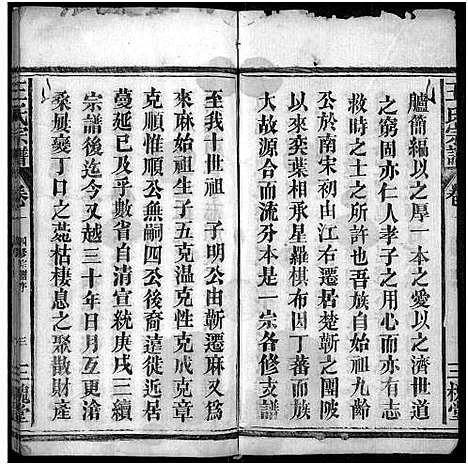 王氏宗譜
臚簡編以之厚一本之愛以之濟世道
之窮固亦仁人孝子之用心而亦
救時之士之所許也吾族自九齡
公於南宋初由江右遷楚蘄之團陂
大故源合而流分本是一宗各修支譜
厥後子姓相承星羅棋布因丁蕃而族
三槐堂
至我十世祖 子明公由蘄遷麻又爲
來麻始祖生子五溫克性克成克章
克順惟克順公無嗣四公後裔遠徙近居
蔓延已及乎數省自清宣統庚戌三續
宗譜後迄今又越三十年日月互更滄
桑屢變丁口之菀枯棲息之聚散財產
王氏宗譜
卷一
四修宗譜序
三
三槐堂